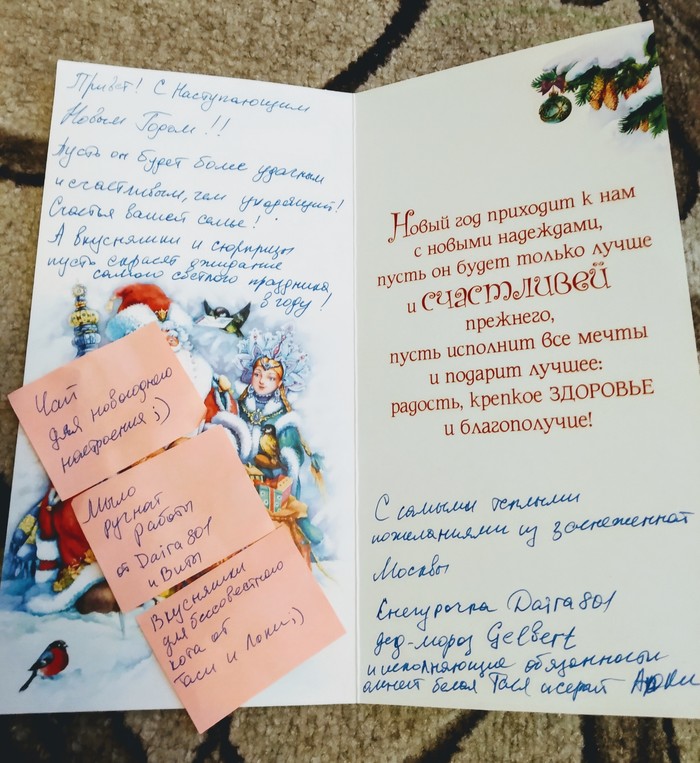 Привет! С Наступающим
Новым Годом!!
Пусть он будет более удачным
и счастливым, чем уходящий!
Счастья вашей семье!
А вкусняшки и сюрпризы
пусть скрасят ожидание
самого светлого праздника
в году!
Чай
для новогоднего
настроения ;)
Мыло
ручной
работы
от Daira801
и Виты
Вкусняшки
для бессовестного
кота от
Таси и Локи ;)
Новый год приходит к нам
с новыми надеждами,
пусть он будет только лучше
и СЧАСТЛИВЕЙ
прежнего,
пусть исполнит все мечты
и подарит лучшее:
радость, крепкое ЗДОРОВЬЕ
и благополучие!
С самыми теплыми
пожеланиями из заснеженной
Москвы
Снегурочка Daira801
дед-мороз Gelbert
и исполняющие обязанности
оленей белая Тася и серый Локи